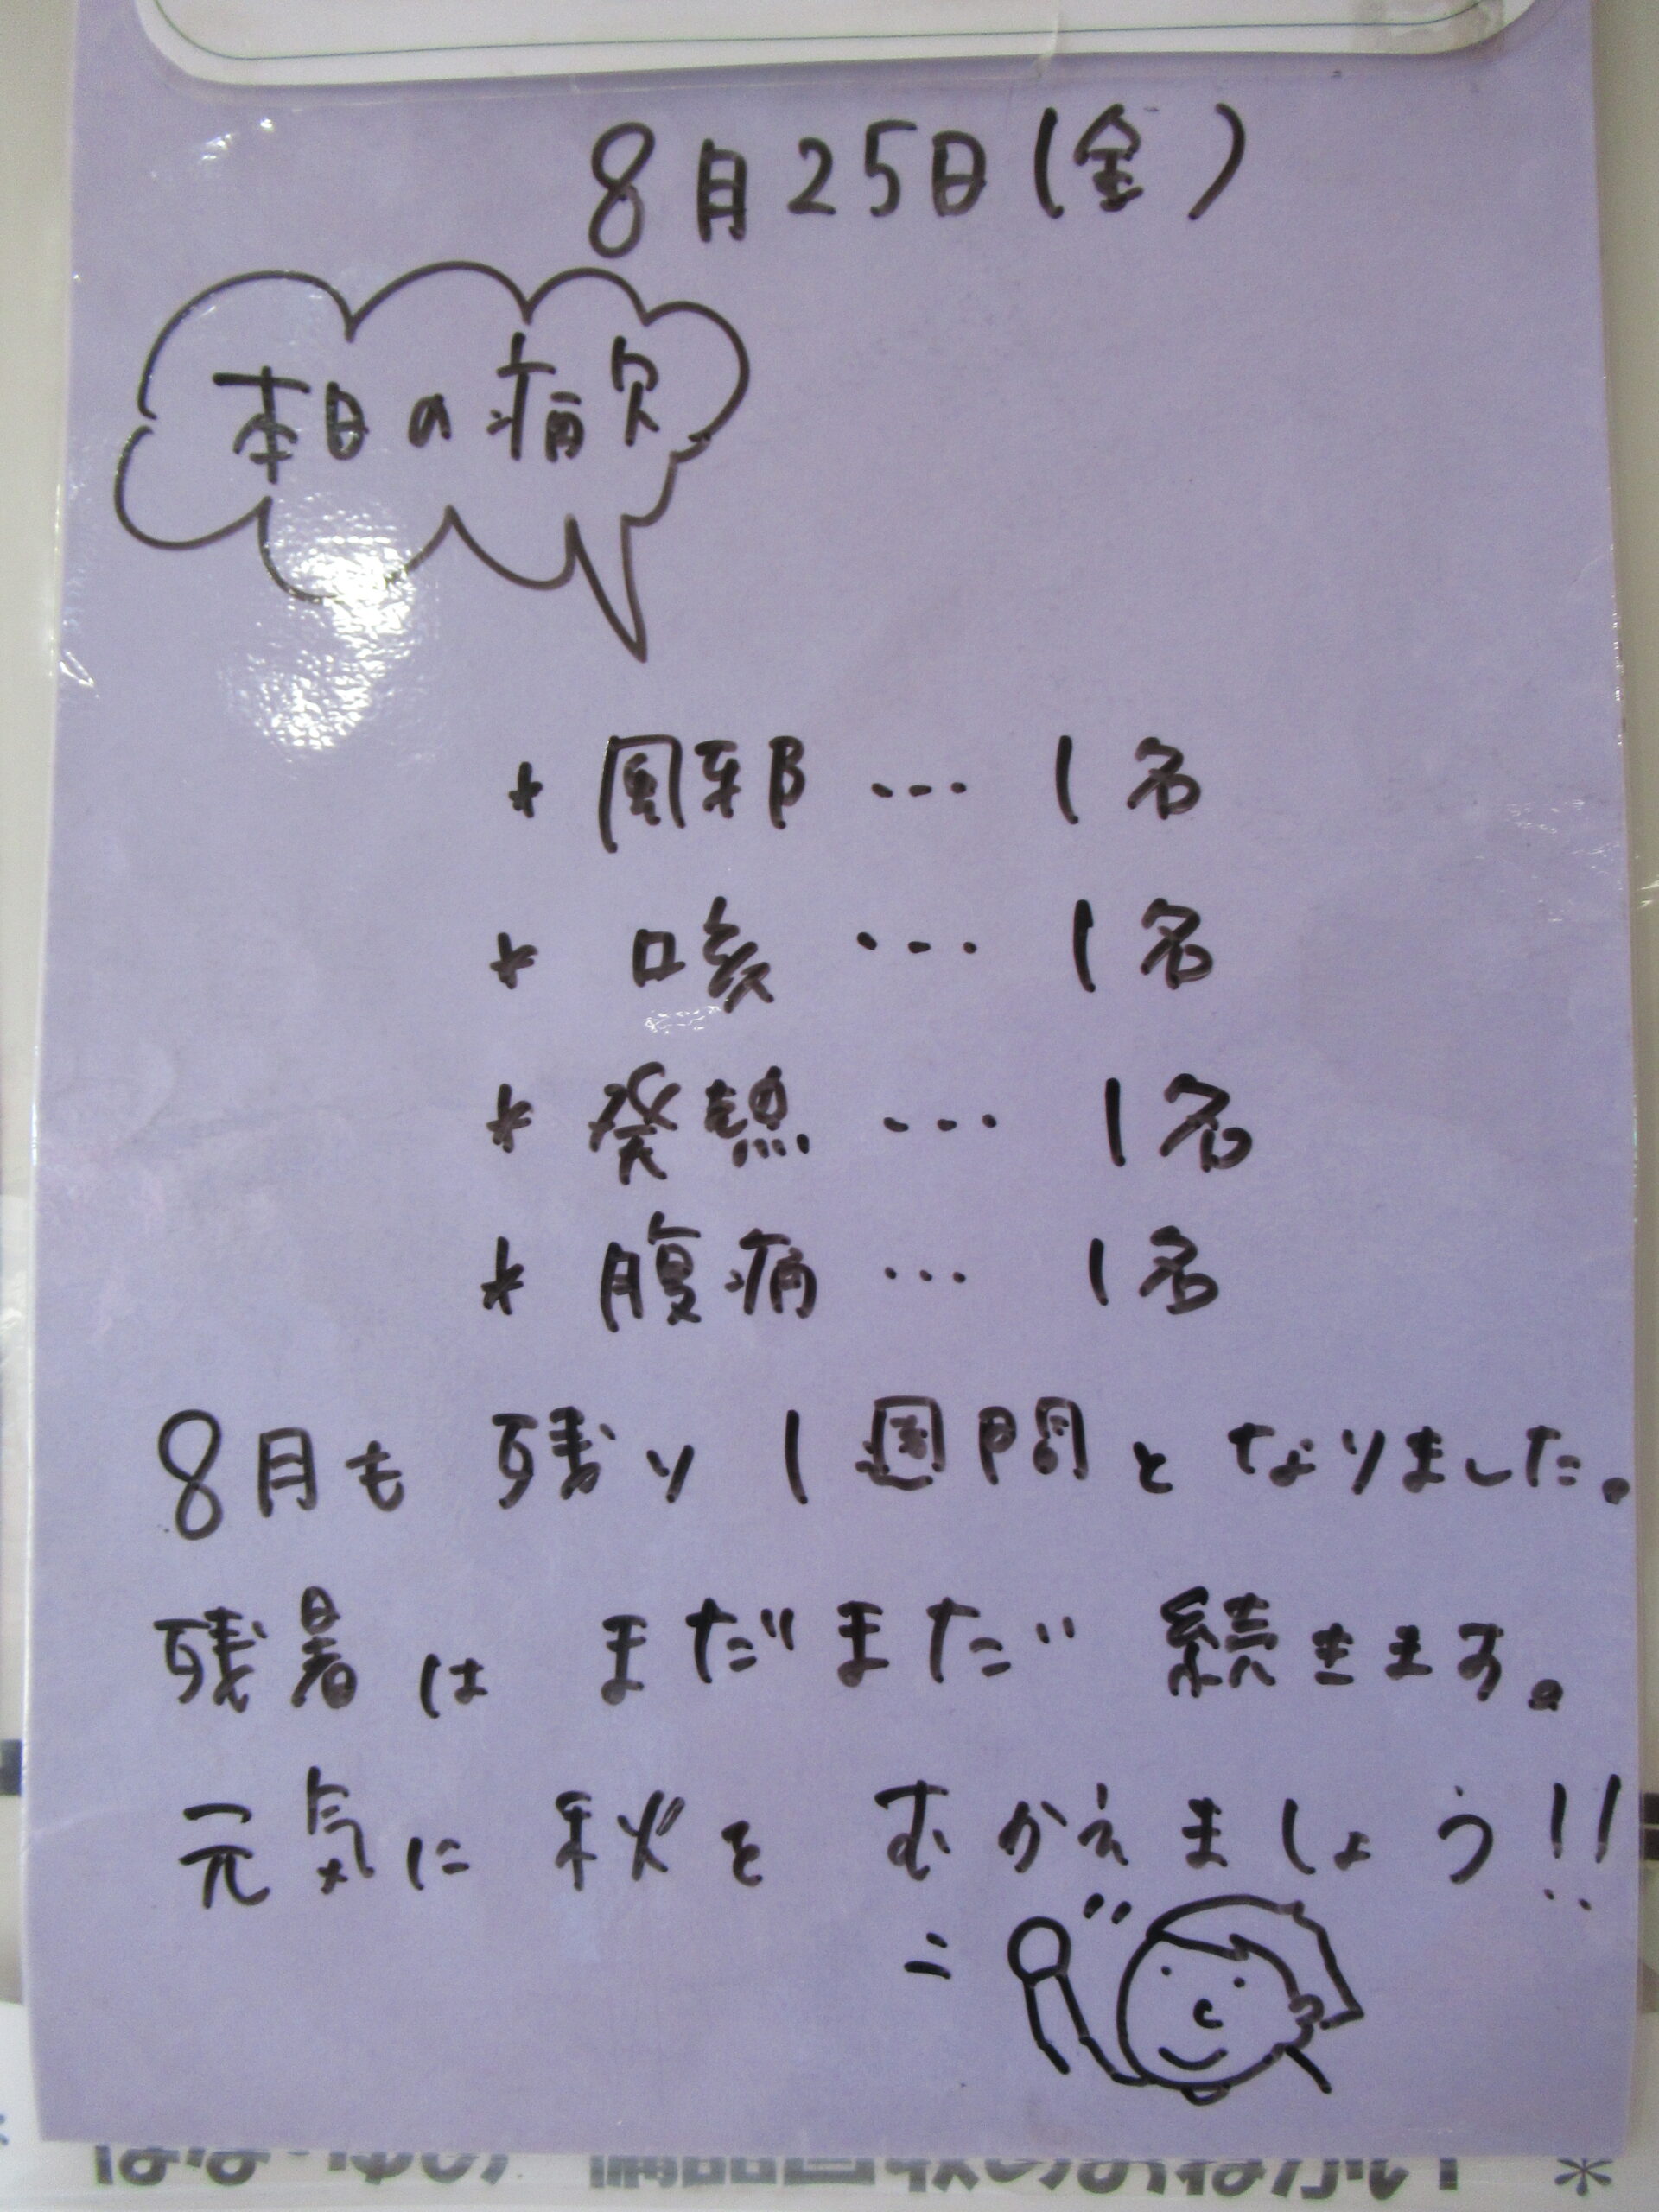 8月25日(金)
本日の病欠
* 風邪 … 1名
* 咳 … 1名
* 発熱 … 1名
* 腹痛 … 1名
8月も残り1週間となりました。
残暑はまだまだ続きます。
元気に秋をむかえましょう!!